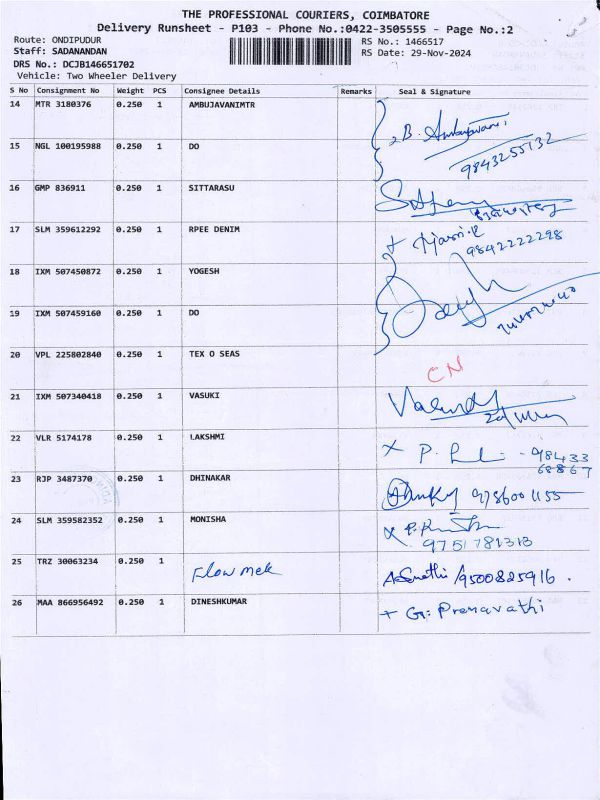 THE PROFESSIONAL COURIERS, COIMBATORE
Delivery Runsheet - P103 - Phone No.:0422-3505555 - Page No.:2
Route: ONDIPUDUR RS No.: 1466517
Staff: SADANANDAN RS Date: 29-Nov-2024
DRS No.: DCJB146651702
Vehicle: Two Wheeler Delivery
S No Consignment No Weight PCS Consignee Details Remarks Seal & Signature
14 MTR 3180376 0.250 1 AMBUJAVANIMTR B. Ambujavani
9843255132
15 NGL 100195988 0.250 1 DO
16 GMP 836911 0.250 1 SITTARASU
17 SLM 359612292 0.250 1 RPEE DENIM
9842222298
18 IXM 507450872 0.250 1 YOGESH
19 IXM 507459160 0.250 1 DO
20 VPL 225802840 0.250 1 TEX O SEAS CN
21 IXM 507340418 0.250 1 VASUKI
22 VLR 5174178 0.250 1 LAKSHMI X P. - 98433
68867
23 RJP 3487370 0.250 1 DHINAKAR 9786001155
24 SLM 359582352 0.250 1 MONISHA
9751781313
25 TRZ 30063234 0.250 1 Flow mek /9500825916.
26 MAA 866956492 0.250 1 DINESHKUMAR + G. Premavathi